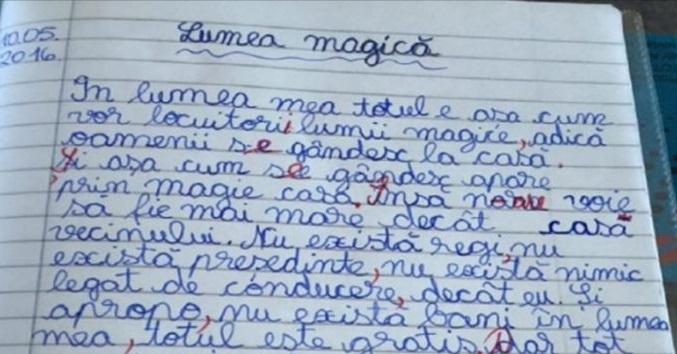 10.05.
2016
Lumea magică
In lumea mea totul e asa cum
vor locuitorii lumii magice, adică
oamenii se gândesc la casă.
Și asa cum see gândesc apare
prin magie casa. Însa noare voie
să fie mai mare decât casă
vecinului. Nu există regi, nu
există presedinte, nu există nimic
legat de conducere, decât eu. Și
apropo, nu există bani în lumea
mea, totul este gratis. Dar tot